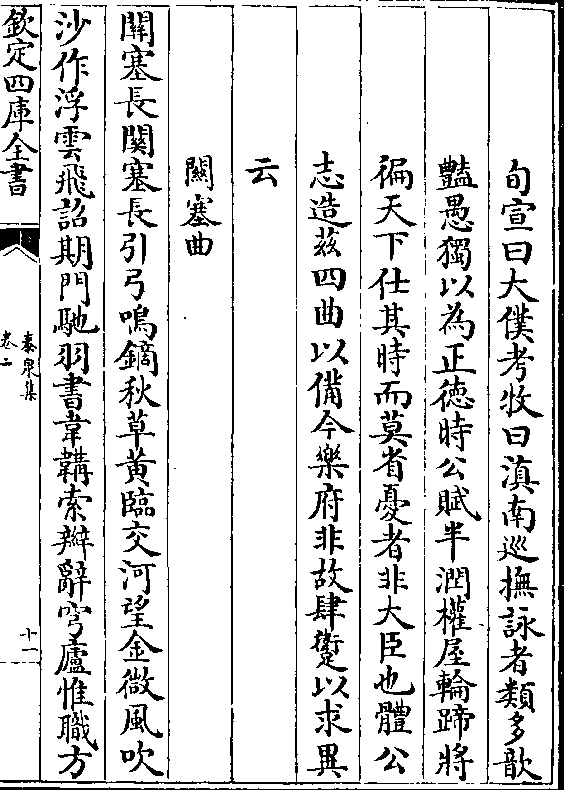 旬宣曰大僕考牧曰滇南巡撫詠者類多歆
豔愚獨以為正徳時公賦半潤權屋輪蹄將
徧天下仕其時而莫省憂者非大臣也體公
志造兹四曲以備今樂府非故肆衊以求異
云
關塞曲
關塞長關塞長引弓鳴鏑秋草黄臨交河望金微風吹
沙作浮雲飛詔期門馳羽書韋鞲索辮辭穹廬惟職方
欽定四庫全書
泰泉集
卷二
十一